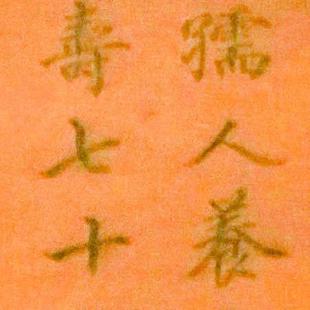 孺人養
壽七十